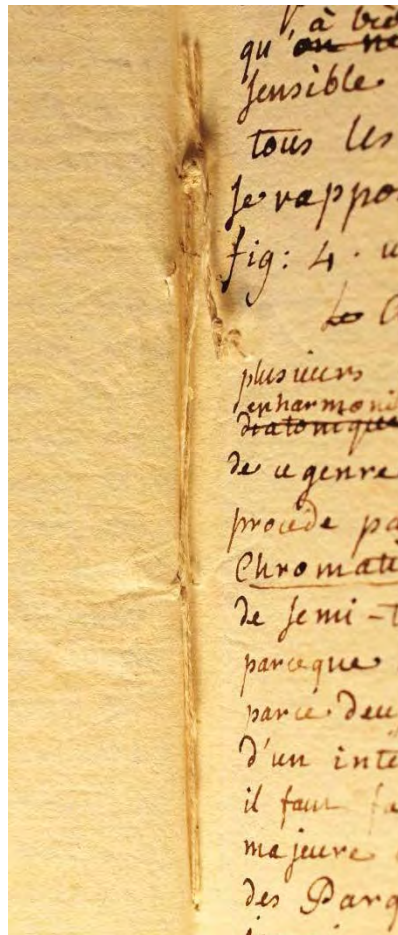 à bie
qu'on ne
sensible
tous les
se rappo
fig: 4. u
Le C
plusieurs
enharmoni
diatonique
de ce genre
procède pa
Chromati
de semi-t
parceque
parce deu
d'un inte
il faut fa
majeure
des Parq